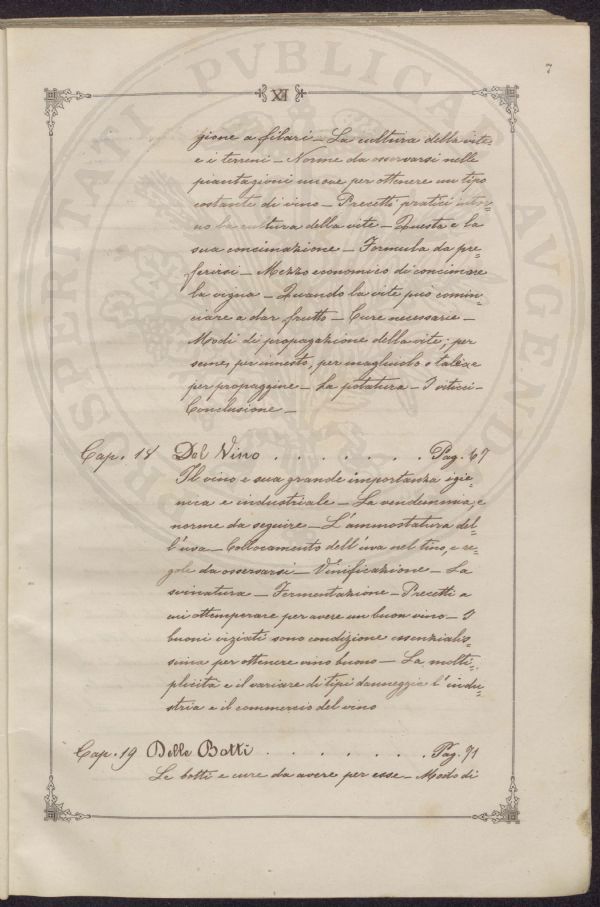 7
XI
zione a filari – La cultura della vite
e i terreni – Norme da osservarsi nelle
piantagioni nuove per ottenere un tipo
costante di vino – Precetti pratici intor=
no la cultura della vite – Questa e la
sua concimazione – Formula da pre=
ferirsi – Mezzo economico di concimare
la vigna – Quando la vite può comin=
ciare a dar frutto – Cure necessarie –
Modi di propagazione della vite; per
seme, per innesto, per magliuolo o talèa e
per propaggine – La potatura – I viticci –
Conclusione –
Cap. 18 Del Vino . . . . . . . Pag. 67
Il vino e sua grande importanza igie=
nica e industriale – La vendemmia, e
norme da seguire – L'ammostatura del=
l'uva – Collocamento dell'uva nel tino, e re=
gole da osservarsi – Vinificazione – La
svinatura – Fermentazione – Precetti a
cui ottemperare per avere un buon vino – I
buoni viziati sono condizione essenzialis=
sima per ottenere vino buono – La molti=
plicità e il variare di tipi danneggia l'indu=
stria e il commercio del vino
Cap. 19 Delle Botti . . . . . . . Pag. 71
Le botti e cure da avere per esse – Modo di
PVBLICAE AVGENDAE PROSPERITATI